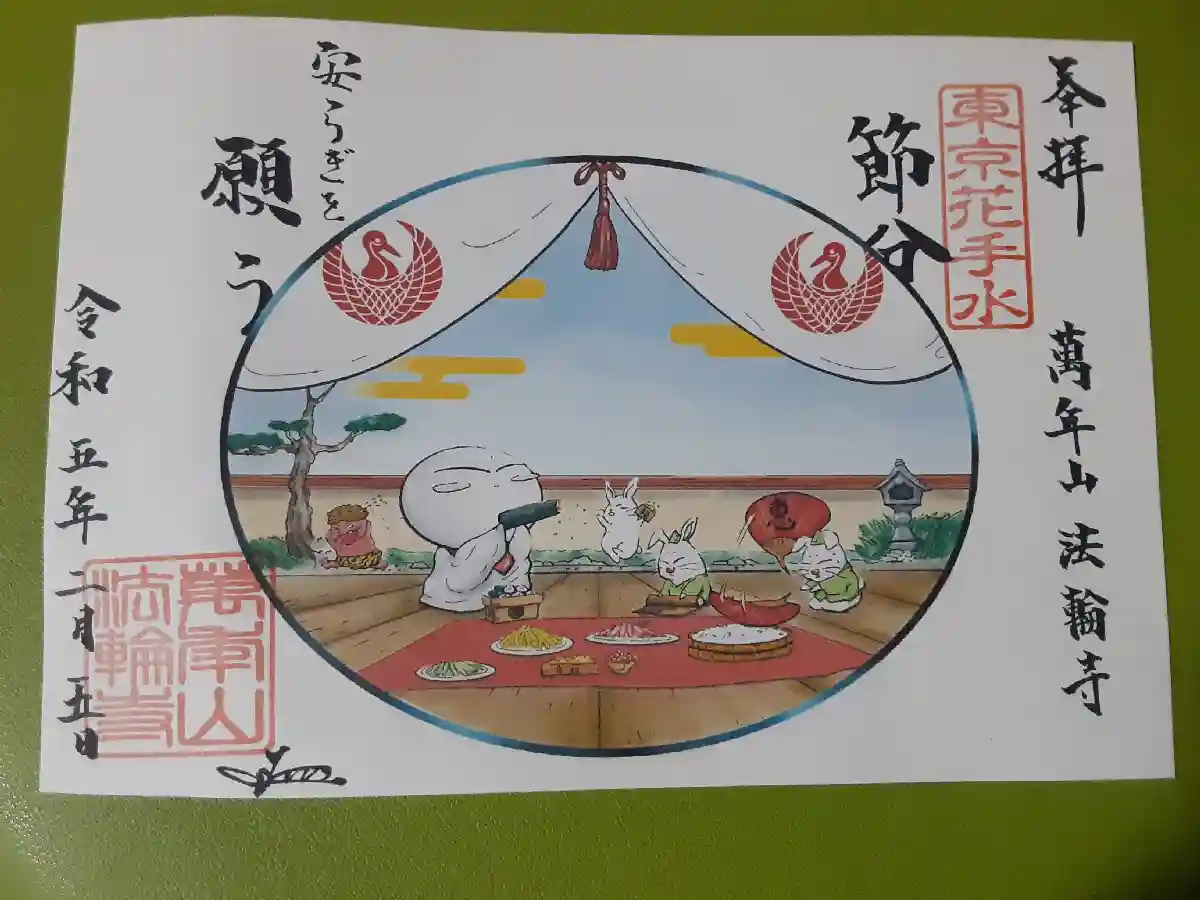 奉拝
萬年山 法輪寺
東京花手水
節分
安らぎを
願う
令和五年二月五日
萬年山
法輪寺